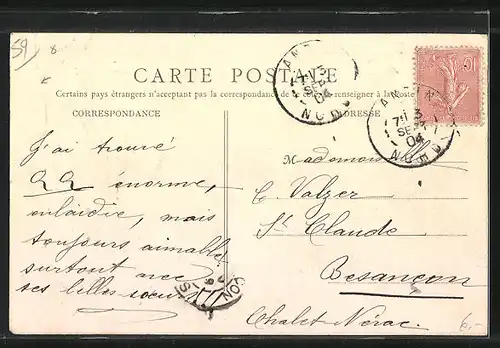 59
8
CARTE POSTALE
Certains pays étrangers n'acceptant pas la correspondance de renseigner à la Poste
CORRESPONDANCE
ADRESSE
J'ai trouvé
énorme,
enlaidie, mais
toujours aimable
surtout avec
ses belles sœurs
Mademoiselle
C. Valzer
St Claude
Besançon
Chalet Nérac.
SEPT
04
NORD
10
7
SEPT
04
NORD
6,-